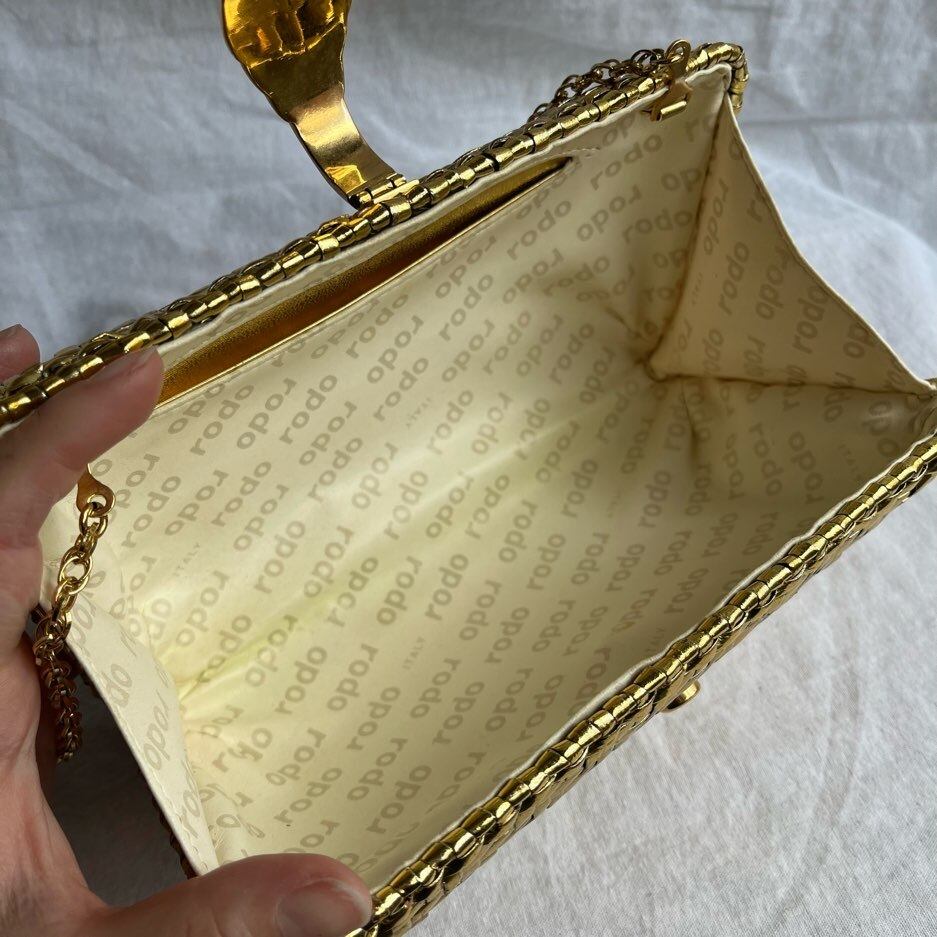 rodo
rodo
rodo
rodo
rodo
rodo
rodo
rodo
rodo
rodo
rodo
rodo
ITALY
rodo
rodo
rodo
rodo
rodo
rodo
ITALY
rodo
rodo
rodo
rodo
rodo
rodo
ITALY
rodo
rodo
rodo
rodo
rodo
rodo